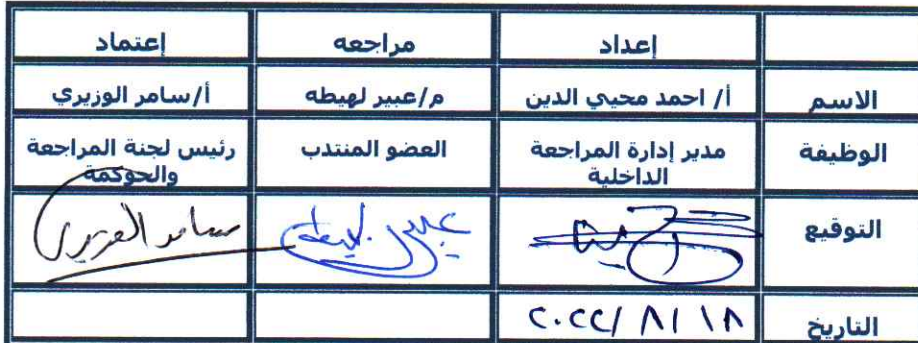 إعداد مراجعه إعتماد
الاسم أ/ احمد محيي الدين م/عبير لهيطه أ/سامر الوزيري
الوظيفة مدير إدارة المراجعة الداخلية العضو المنتدب رئيس لجنة المراجعة والحوكمة
التوقيع عبير لهيطه سامر الوزيري
التاريخ ٢٠٢٢/٨/١٨